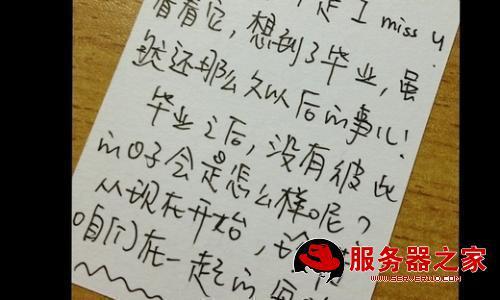 是 I miss u.
看看它，想到了毕业，虽
然还那么久以后的事儿！
毕业之后，没有彼此
的日子会是怎么样呢？
从现在开始，
咱们在一起的
服务器之家
WWW.SERVER110.COM